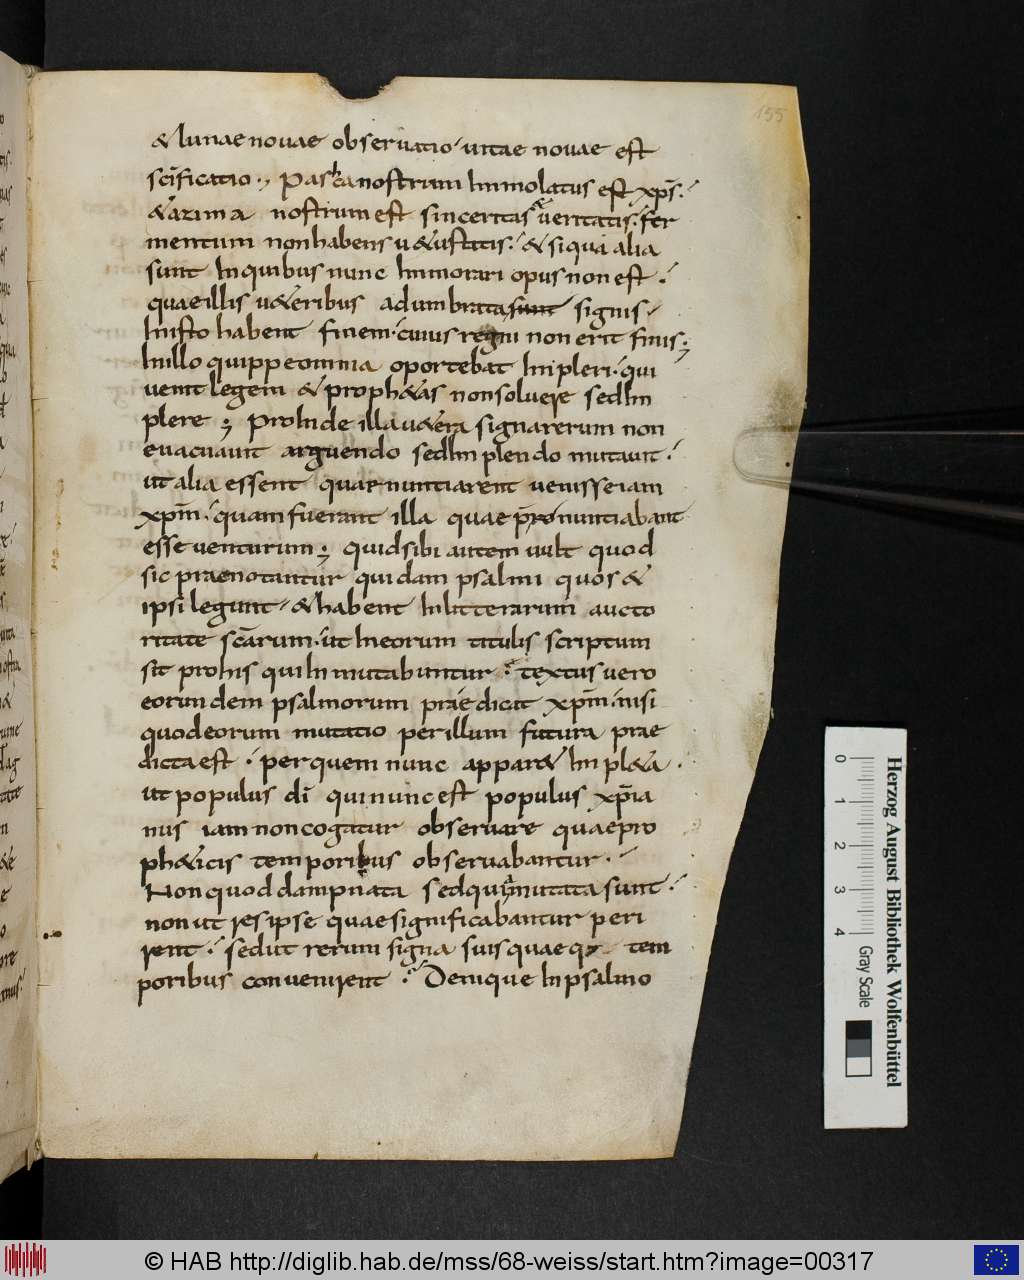 155
& lunae nouae obseruatio uitae nouae est
scīficatio ·, Pascha nostrum Inmolatus est xp̄s·
& azima nostrum est sinceritas & ueritatis · fer
mentum non habens u&ustatis · & siqua alia
sunt In quibus nunc Inmorari opus non est ·
quae illis u&eribus adumbrata sunt signis ·
In isto habent finem · cuius regni non erit finis ;
In illo quippe omnia oportebat Inpleri · qui
uenit legem & proph&as non soluere sed In
plere ; Pro Inde illa u&era signa rerum non
euacuauit arguendo sed Inplendo mutauit ·
ut alia essent quae nuntiarent uenisse iam
xp̄m · quam fuerant illa quae p̄ronuntiabant
esse uenturum ; quid sibi autem uult quod
sic praenotantur quidam psalmi quos &
ipsi legunt · & habent In litterarum aucto
ritate scārum · ut In eorum titulis scriptum
sit pro his qui Inmutabuntur · textus uero
eorundem psalmorum praedicit xp̄m · nisi
quod eorum mutatio per illum futura prae
dicta est · per quem nunc appar& Inpl&a ·
ut populus dī qui nunc est populus xp̄ia
nus iam non cogatur obseruare quae pro
ph&icis temporibus obseruabantur ·
Non quod dampnata sed quia mutata sunt ·
non ut res ipse quae significabantur peri
rent · sed ut rerum signa suis quaeq; tem
poribus conuenirent · Denique In psalmo
0 1 2 3 4
Gray Scale
Herzog August Bibliothek Wolfenbüttel
© HAB http://diglib.hab.de/mss/68-weiss/start.htm?image=00317